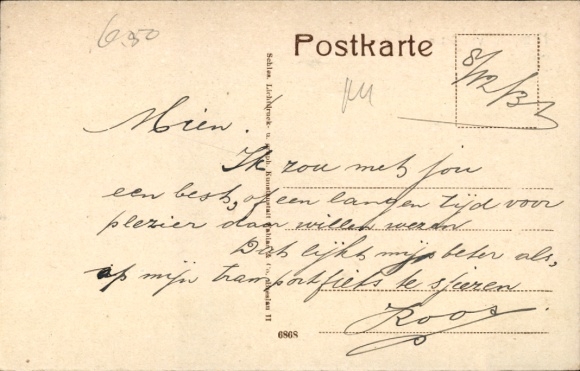 6.50
Postkarte
8/12/32
Mien.
Ik zou met jou
een best, of een langen tijd voor
plezier daar willen wezen
Dat lijkt mij beter als,
op mijn transportfiets te sjezen
Koos
Schles. Lichtdruck- u. graph. Kunstanstalt & Co., Breslau II
6868